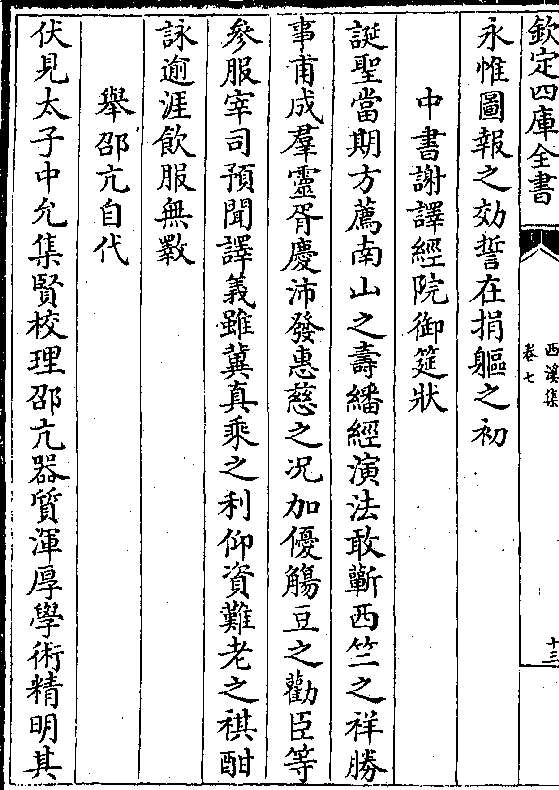 欽定四庫全書
西溪集
卷七
十三
永惟圖報之効誓在捐軀之初
中書謝譯經院御筵狀
誕聖當期方薦南山之壽繙經演法敢蘄西竺之祥勝
事甫成羣靈胥慶沛發惠慈之况加優觴豆之勸臣等
參服宰司預聞譯義雖冀真乘之利仰資難老之祺酣
詠逾涯飲服無斁
舉邵亢自代
伏見太子中允集賢校理邵亢器質渾厚學術精明其